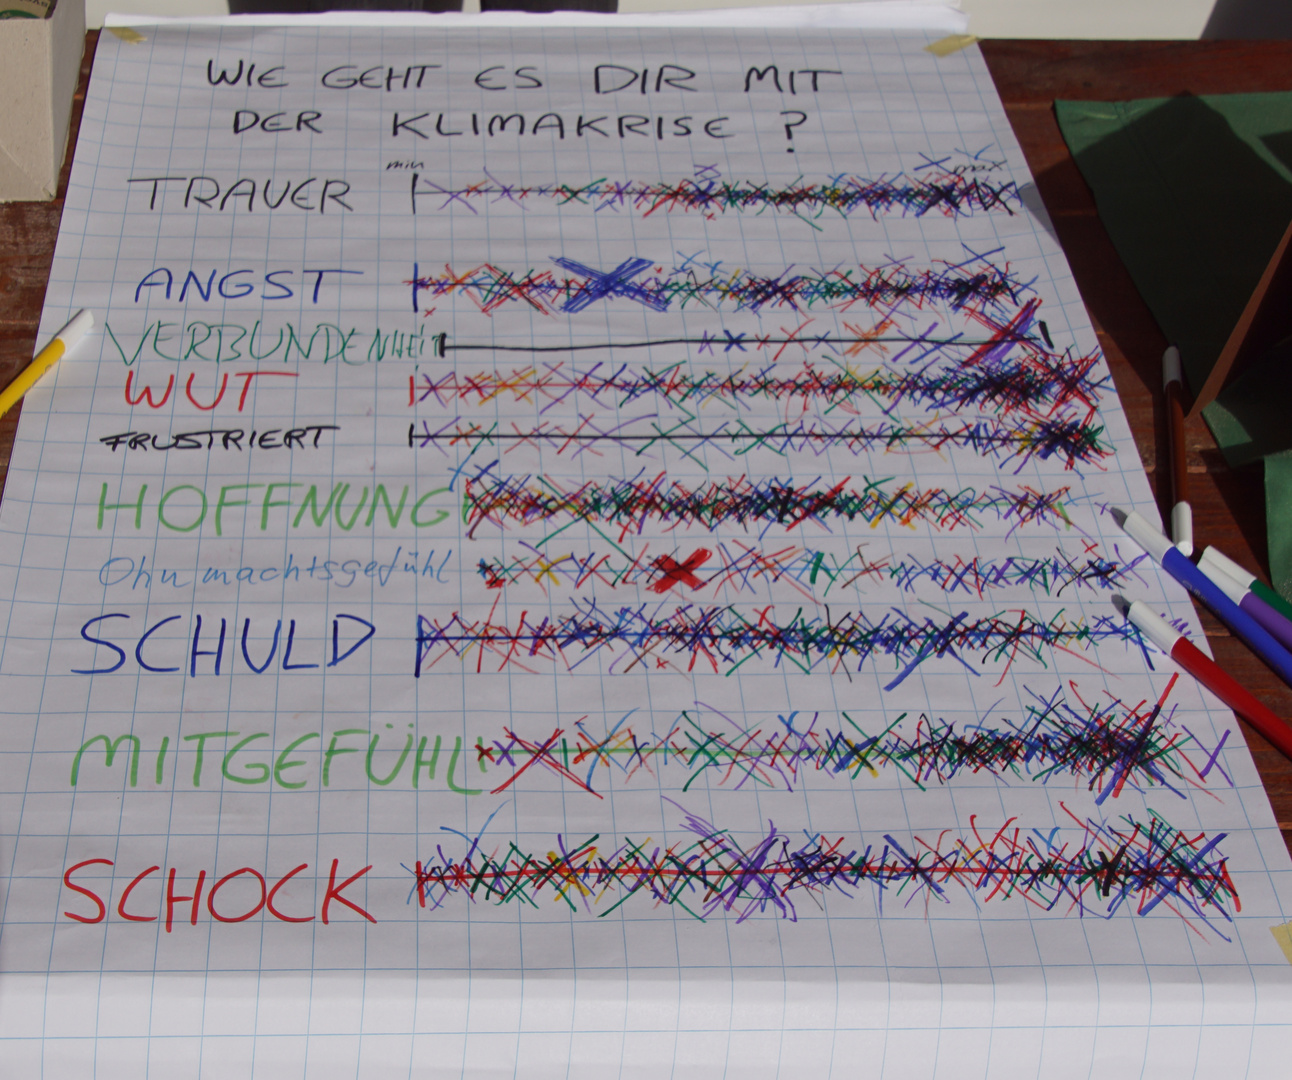 WIE GEHT ES DIR MIT
DER KLIMAKRISE ?
min max
TRAUER
ANGST
VERBUNDENHEIT
WUT
FRUSTRIERT
HOFFNUNG
Ohnmachtsgefühl
SCHULD
MITGEFÜHL
SCHOCK